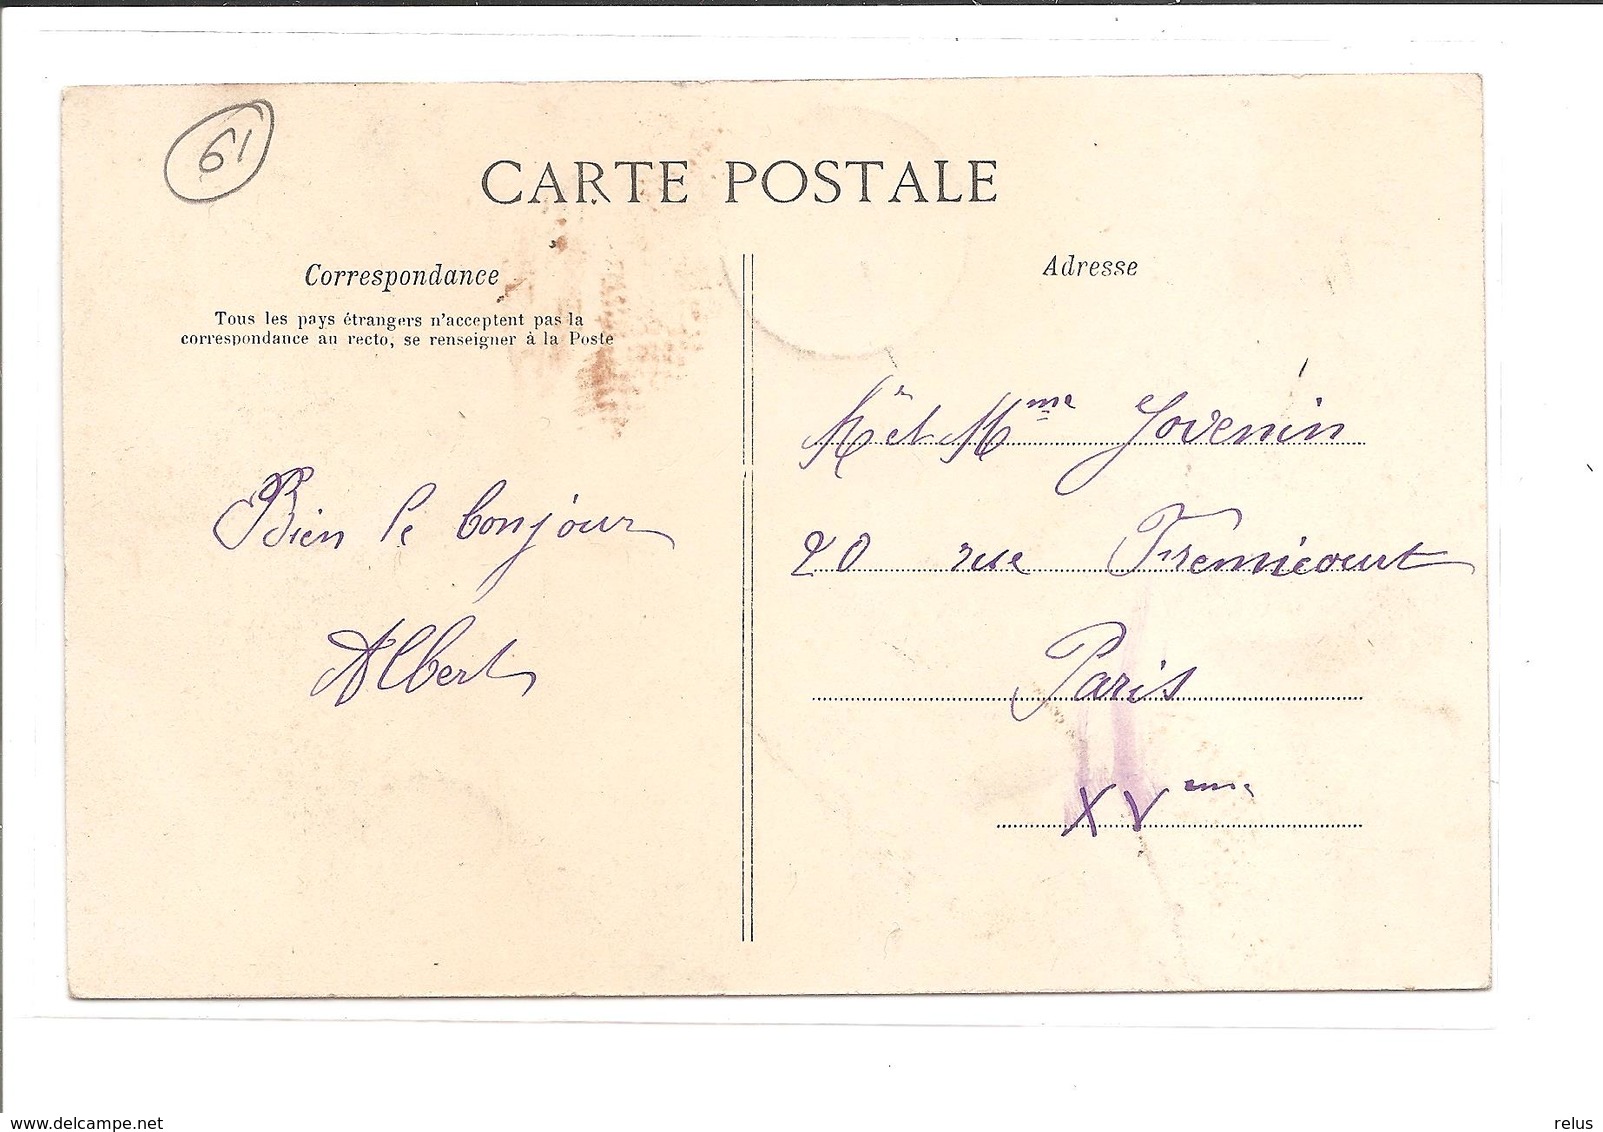 61
CARTE POSTALE
Correspondance
Tous les pays étrangers n'acceptent pas la
correspondance au recto, se renseigner à la Poste
Bien le bonjour
Albert
Adresse
Mr et Mme Jovenin
20 rue Fremicourt
Paris
XVeme
www.delcampe.net
relus